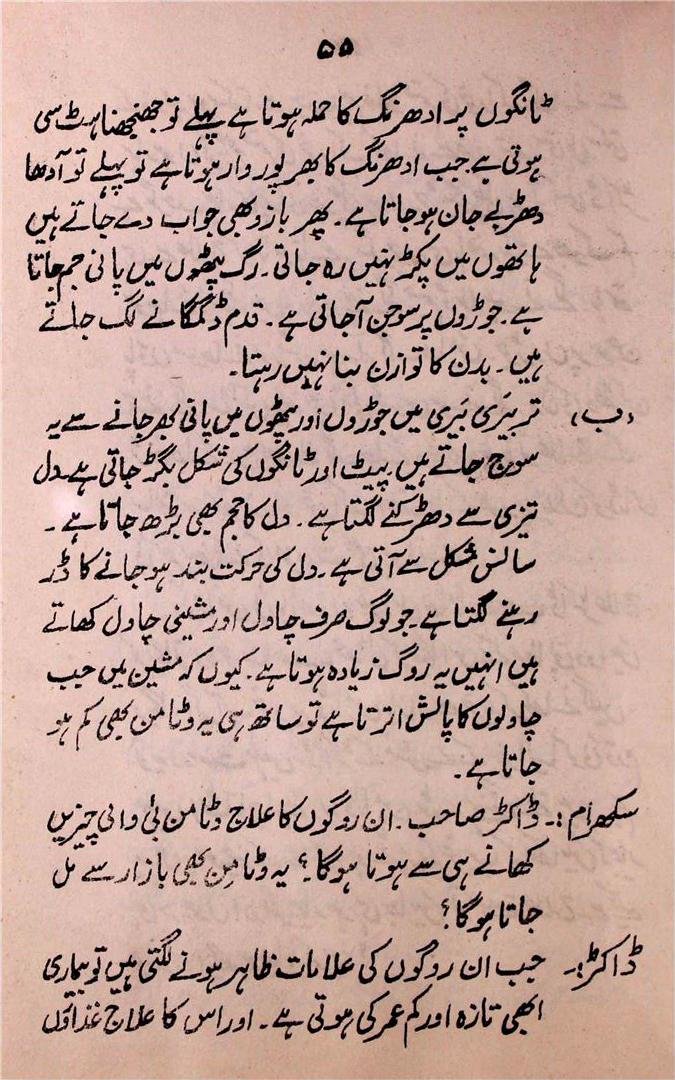 ۵۵
ٹانگوں پر ادھرنگ کا حملہ ہوتا ہے پہلے تو جھنجھناہٹ سی
ہوتی ہے۔ جب ادھرنگ کا بھرپور وار ہوتا ہے تو پہلے تو آدھا
دھڑ بے جان ہو جاتا ہے۔ پھر بازو بھی جواب دے جاتے ہیں
ہاتھوں میں پکڑ نہیں رہ جاتی۔ رگ پٹھوں میں پانی جم جاتا
ہے۔ جوڑوں پر سوجن آ جاتی ہے۔ قدم ڈگمگانے لگ جاتے
ہیں۔ بدن کا توازن بنا نہیں رہتا۔
(ب) تر بیَری بیَری میں جوڑوں اور پٹھوں میں پانی بھر جانے سے یہ
سوج جاتے ہیں۔ پیٹ اور ٹانگوں کی شکل بگڑ جاتی ہے۔ دل
تیزی سے دھڑکنے لگتا ہے۔ دل کا حجم بھی بڑھ جاتا ہے۔
سانس مشکل سے آتی ہے۔ دل کی حرکت بند ہو جانے کا ڈر
رہنے لگتا ہے۔ جو لوگ صرف چاول اور مشینی چاول کھاتے
ہیں انہیں یہ روگ زیادہ ہوتا ہے۔ کیوں کہ مشین میں جب
چاولوں کا پالش اترتا ہے تو ساتھ ہی یہ وٹامن بھی کم ہو
جاتا ہے۔
سکھرام :۔ ڈاکٹر صاحب۔ ان روگوں کا علاج وٹامن بی والی چیزیں
کھانے ہی سے ہوتا ہوگا۔؟ یہ وٹامن بھی بازار سے مل
جاتا ہوگا؟
ڈاکٹر:۔ جب ان روگوں کی علامات ظاہر ہونے لگتی ہیں تو بیماری
ابھی تازہ اور کم عمر کی ہوتی ہے۔ اور اس کا علاج غذاؤں